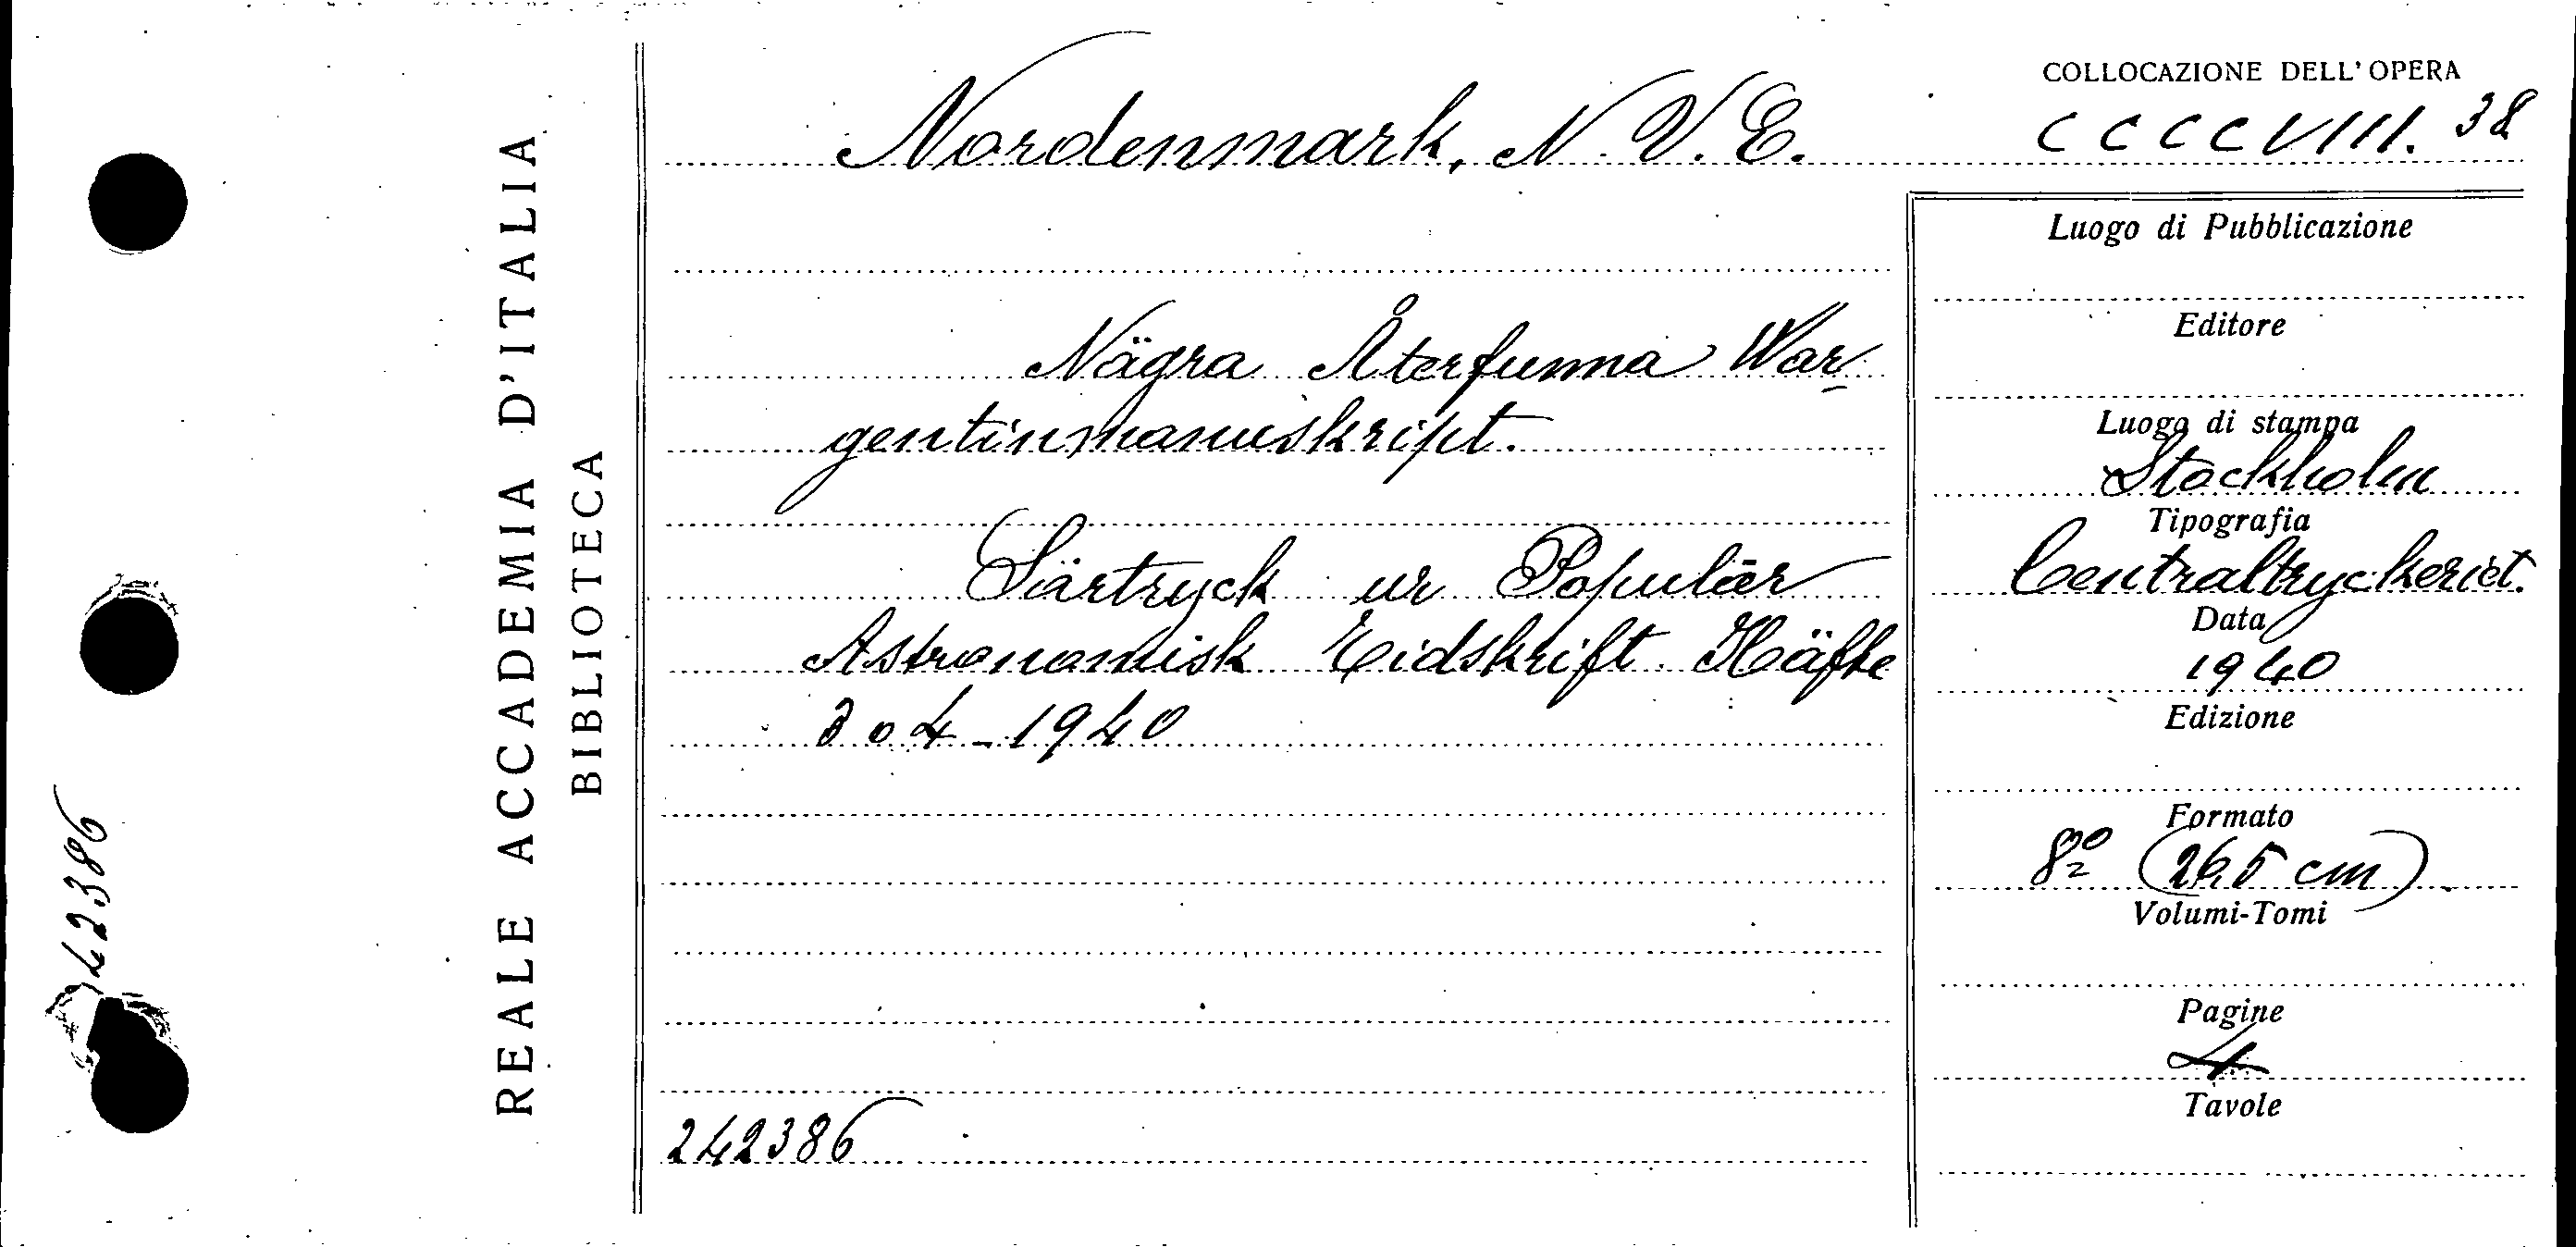 REALE ACCADEMIA D'ITALIA
BIBLIOTECA
242386
Nordenmark, N. V. E.
Nägra Återfunna War-
gentinmanuskript.
Särtryck ur Populär
Astronomisk Tidskrift. Häfte
3 o 4 - 1940
242386
COLLOCAZIONE DELL'OPERA
CCCCVIII. 38
Luogo di Pubblicazione
Editore
Luogo di stampa
Stockholm
Tipografia
Centraltryckeriet.
Data
1940
Edizione
Formato
8º (26,5 cm)
Volumi-Tomi
Pagine
4
Tavole